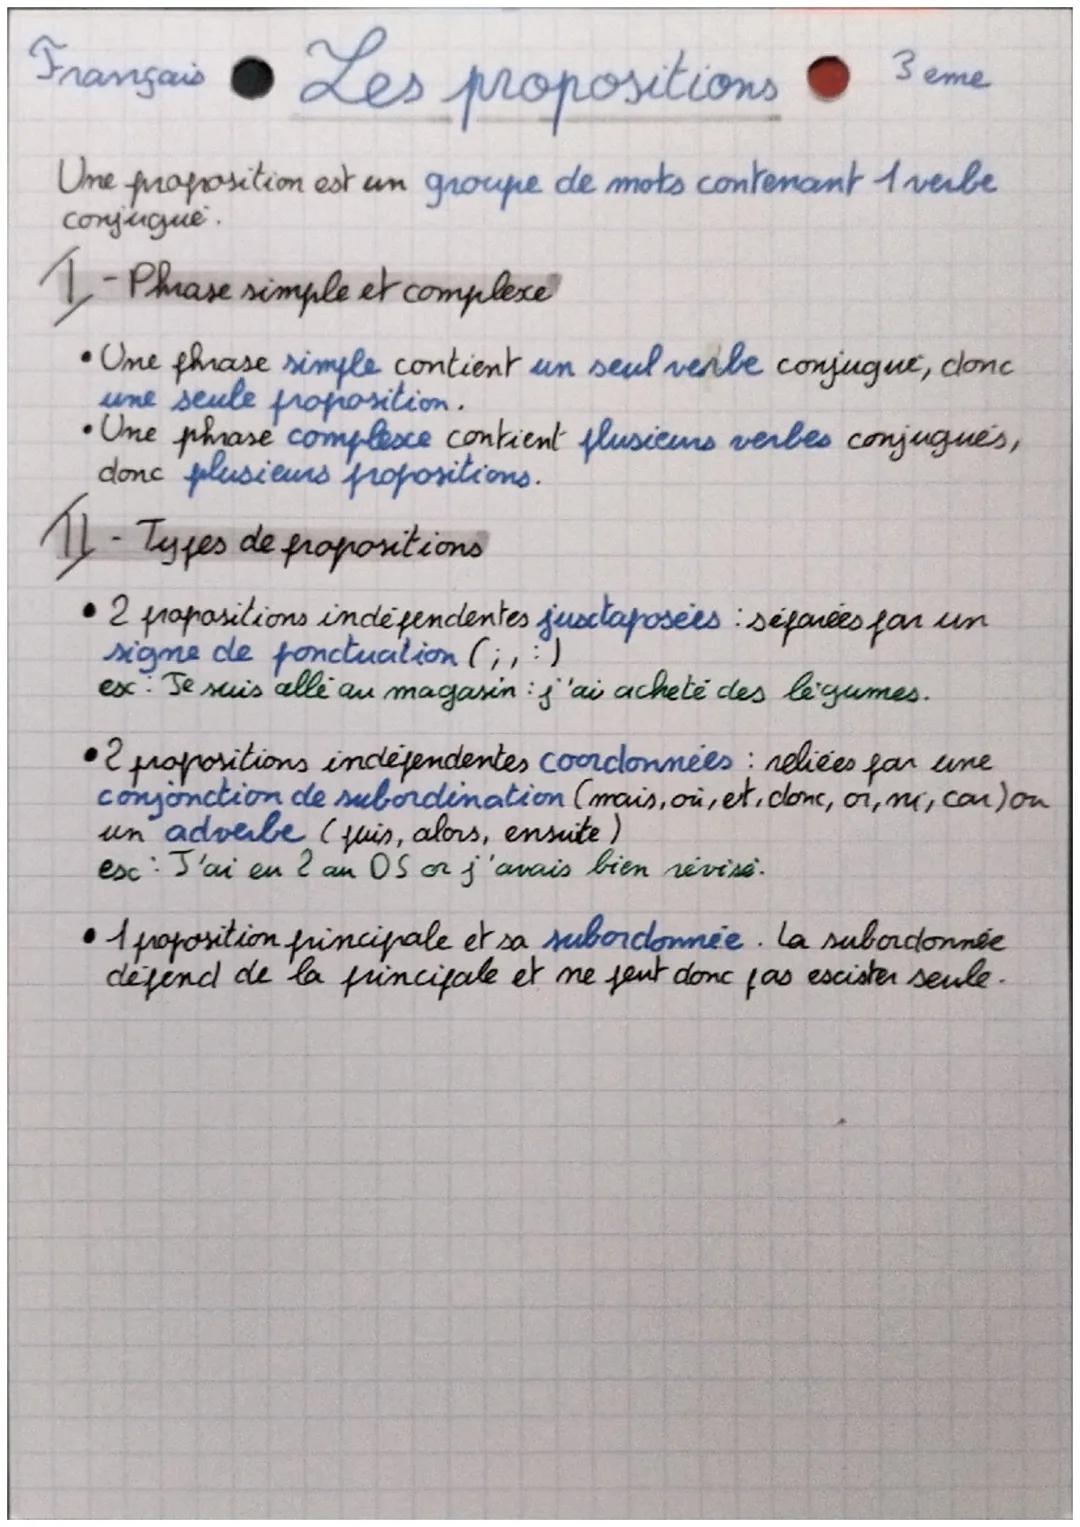 Français • Les propositions • 3 eme
Une proposition est un groupe de mots contenant 1 verbe
conjugué.
I - Phrase simple et complexe
• Une phrase simple contient un seul verbe conjugué, donc
une seule proposition.
• Une phrase complexe contient plusieurs verbes conjugués,
donc plusieurs propositions.
II - Types de propositions
• 2 propositions indépendentes juxtaposées : séparées par un
signe de ponctuation (; , :)
ex : Je suis allé au magasin : j'ai acheté des légumes.
• 2 propositions indépendentes coordonnées : reliées par une
conjonction de subordination (mais, où, et, donc, or, ni, car) ou
un adverbe (puis, alors, ensuite)
ex : J'ai eu 2 au DS or j'avais bien révisé.
• 1 proposition principale et sa subordonnée. La subordonnée
dépend de la principale et ne peut donc pas exister seule.